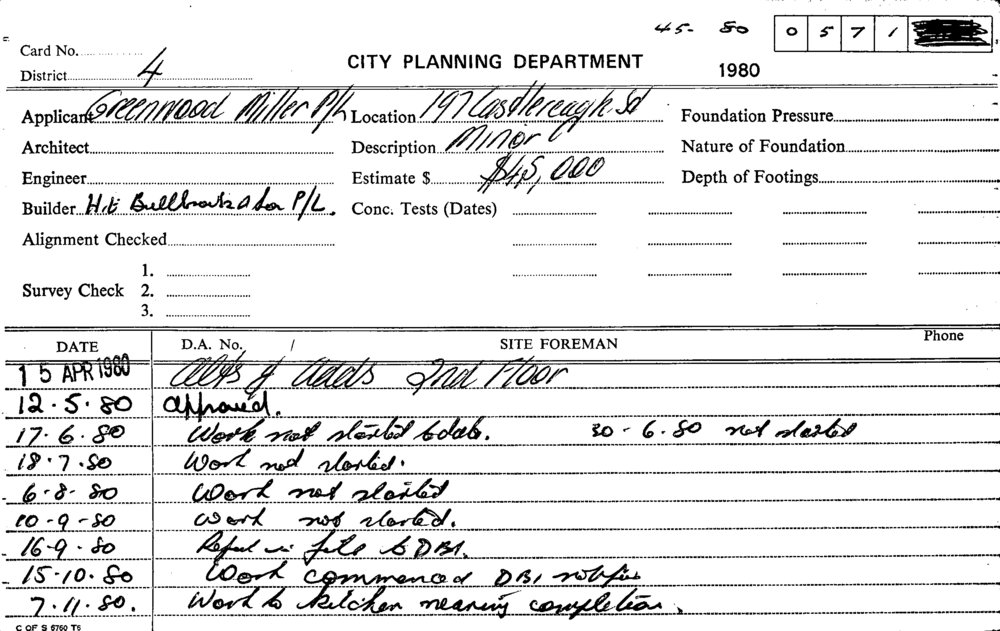 45- 80 0 5 7 1
Card No.
District 4
CITY PLANNING DEPARTMENT
1980
Applicant Greenwood Miller P/L Location 197 Castlereagh St Foundation Pressure
Architect Description Minor Nature of Foundation
Engineer Estimate $ $45,000 Depth of Footings
Builder P/L. Conc. Tests (Dates)
Alignment Checked
1.
Survey Check 2.
3.
DATE D.A. No. / SITE FOREMAN Phone
15 APR 1980 Alts & Adds 2nd Floor
12.5.80 approved.
17.6.80 Work not started to date. 30-6.80 not started
18.7.80 Work not started.
6-8-80 Work not started
10-9-80 work not started.
16-9.80 file to DBI.
15-10.80 Work commenced DBI
7.11.80. Work to kitchen nearing completion.
C OF S 6760 T6